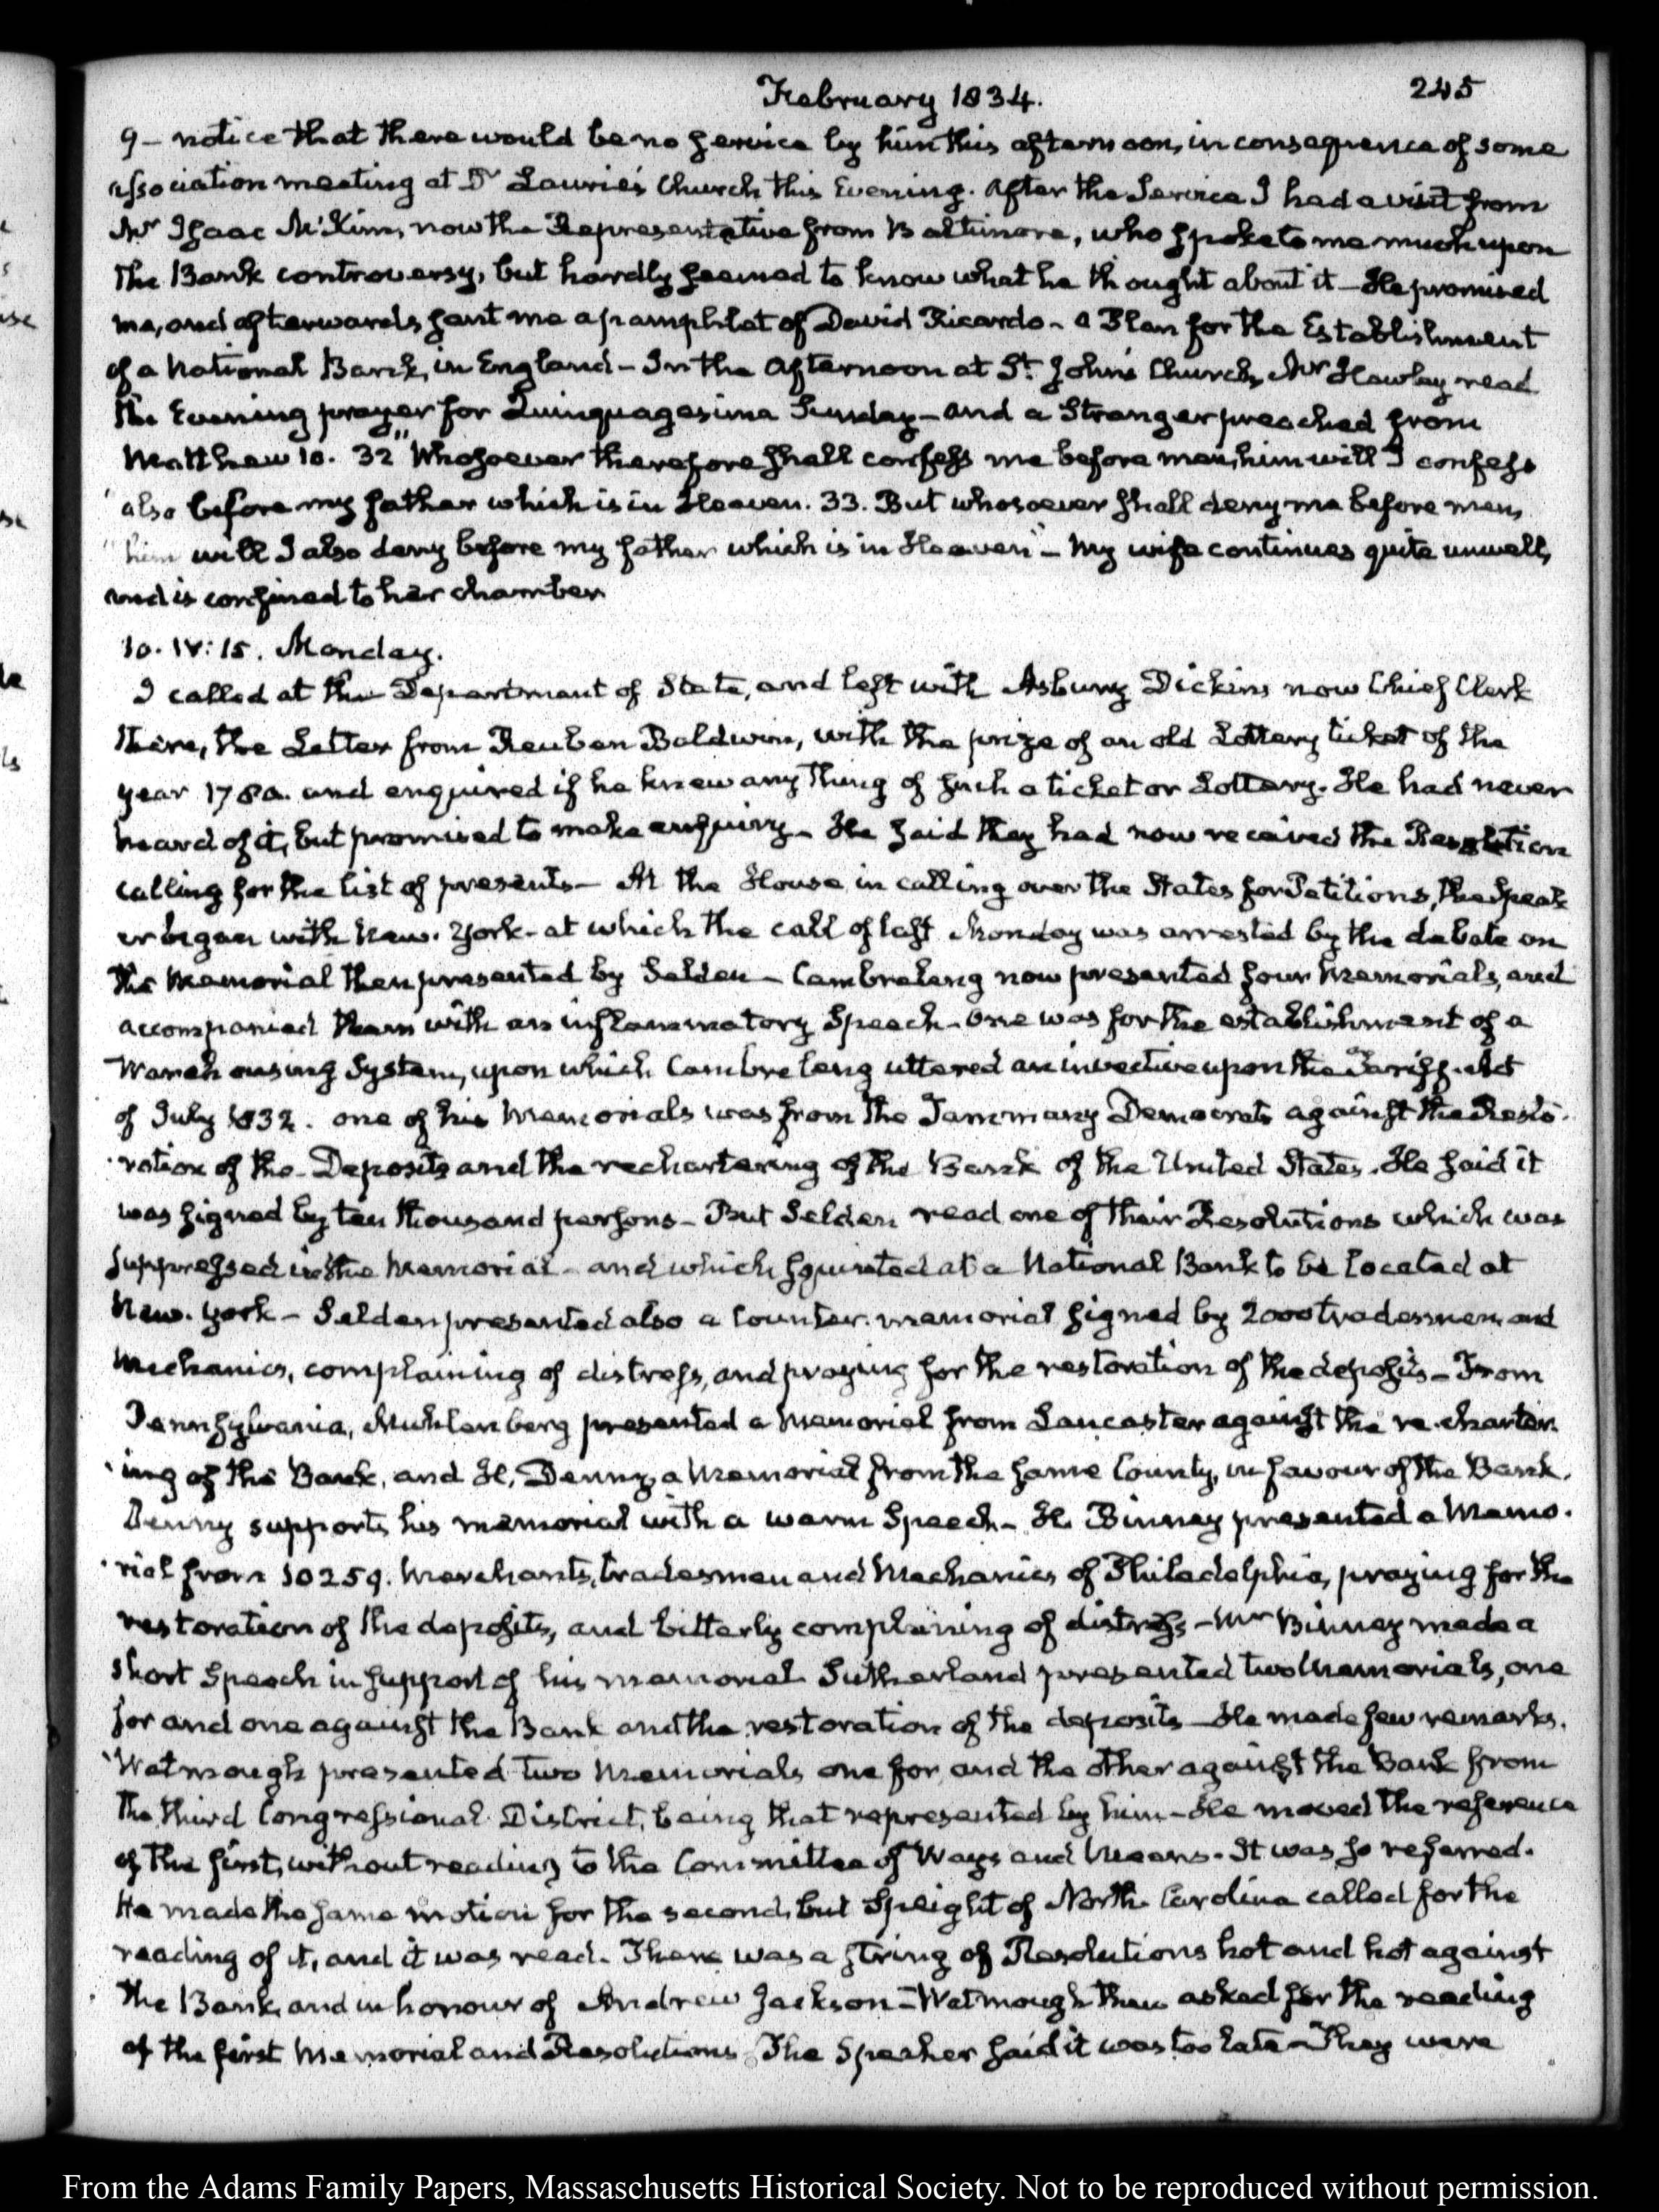 February 1834. 245
9 – notice that there would be no service by him this afternoon, in consequence of some
association meeting at Dr Laurie's Church this Evening. After the Service I had a visit from
Mr Isaac McKim, now the Representative from Baltimore, who spoke to me much upon
the Bank controversy, but hardly seemed to know what he thought about it – He promised
me, and afterwards sent me a pamphlet of David Ricardo – a Plan for the Establishment
of a National Bank, in England – In the Afternoon at St. John's Church, Mr Hawley read
the Evening prayer for Quinquagesima Sunday – and a Stranger preached from
Matthew 10. 32 "Whosoever therefore shall confess me before men, him will I confess
"also before my father which is in Heaven. 33. But whosoever shall deny me before men,
"him will I also deny before my father which is in Heaven" – My wife continues quite unwell,
and is confined to her chamber
10. IV:15. Monday.
I called at the Department of State, and left with Asbury Dickins now Chief Clerk
there, the Letter from Reuben Baldwin, with the prize of an old Lottery ticket of the
year 1780. and enquired if he knew any thing of such a ticket or Lottery. He had never
heard of it, but promised to make enquiry – He said they had now received the Resolution
calling for the list of presents – At the House, in calling over the States for Petitions, the Speak
er began with New-York – at which the call of last Monday was arrested by the debate on
the Memorial then presented by Selden – Cambreleng now presented four Memorials, and
accompanied them with an inflammatory Speech – one was for the establishment of a
Warehousing System, upon which Cambreleng uttered an invective upon the Tariff-Act
of July 1832. one of his Memorials was from the Tammany Democrats against the Resto-
-ration of the Deposits and the rechartering of the Bank of the United States. He said it
was signed by ten thousand persons – But Selden read one of their Resolutions which was
suppressed in the Memorial – and which squinted at a National Bank to be located at
New-York – Selden presented also a Counter-memorial signed by 2000 tradesmen and
Mechanics, complaining of distress, and praying for the restoration of the deposits – From
Pennsylvania, Muhlenberg presented a Memorial from Lancaster against the re-charter-
-ing of the Bank, and H. Denny, a Memorial from the same County, in favour of the Bank.
Denny supports his memorial with a warm Speech – H. Binney presented a Memo-
-rial from 10259. Merchants, tradesmen and Mechanics of Philadelphia, praying for the
restoration of the deposits, and bitterly complaining of distress – Mr Binney made a
short Speech in support of his memorial Sutherland presented two Memorials, one
for and one against the Bank and the restoration of the deposits – He made few remarks.
Watmough presented two Memorials one for, and the other against the Bank from
the third Congressional District, being that represented by him – He moved the reference
of the first, without reading to the Committee of Ways and Means. It was so referred.
He made the same motion for the second, but Speight of North Carolina called for the
reading of it, and it was read. There was a string of Resolutions hot and hot against
the Bank, and in honour of Andrew Jackson – Watmough then asked for the reading
of the first Memorial and Resolutions The Speaker said it was too late – They were
From the Adams Family Papers, Massachusetts Historical Society. Not to be reproduced without permission.